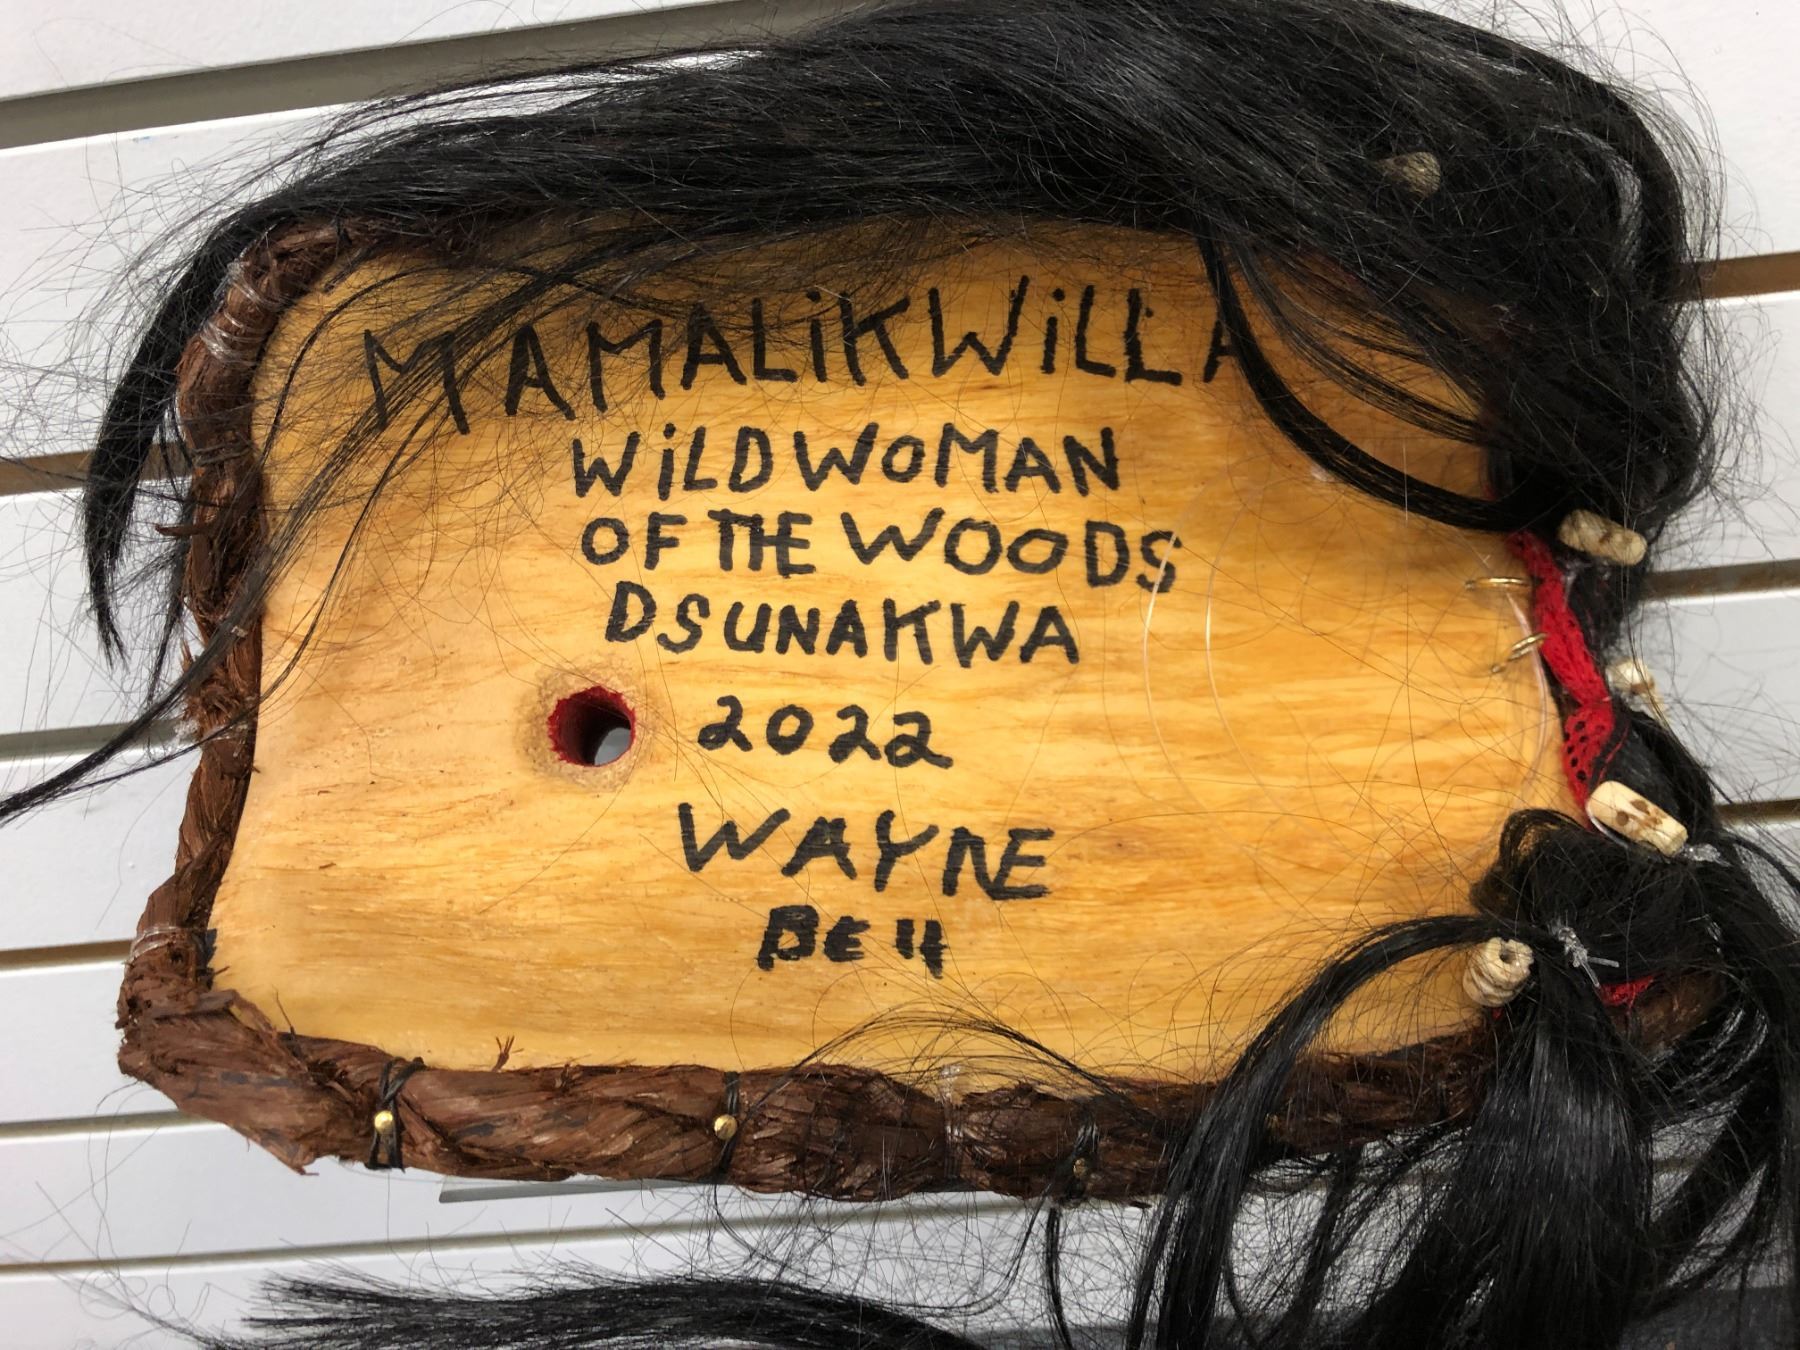 MAMALiKWiLLA
WiLDWOMAN
OF THE WOODS
DSUNAKWA
2022
WAYNE
BELL